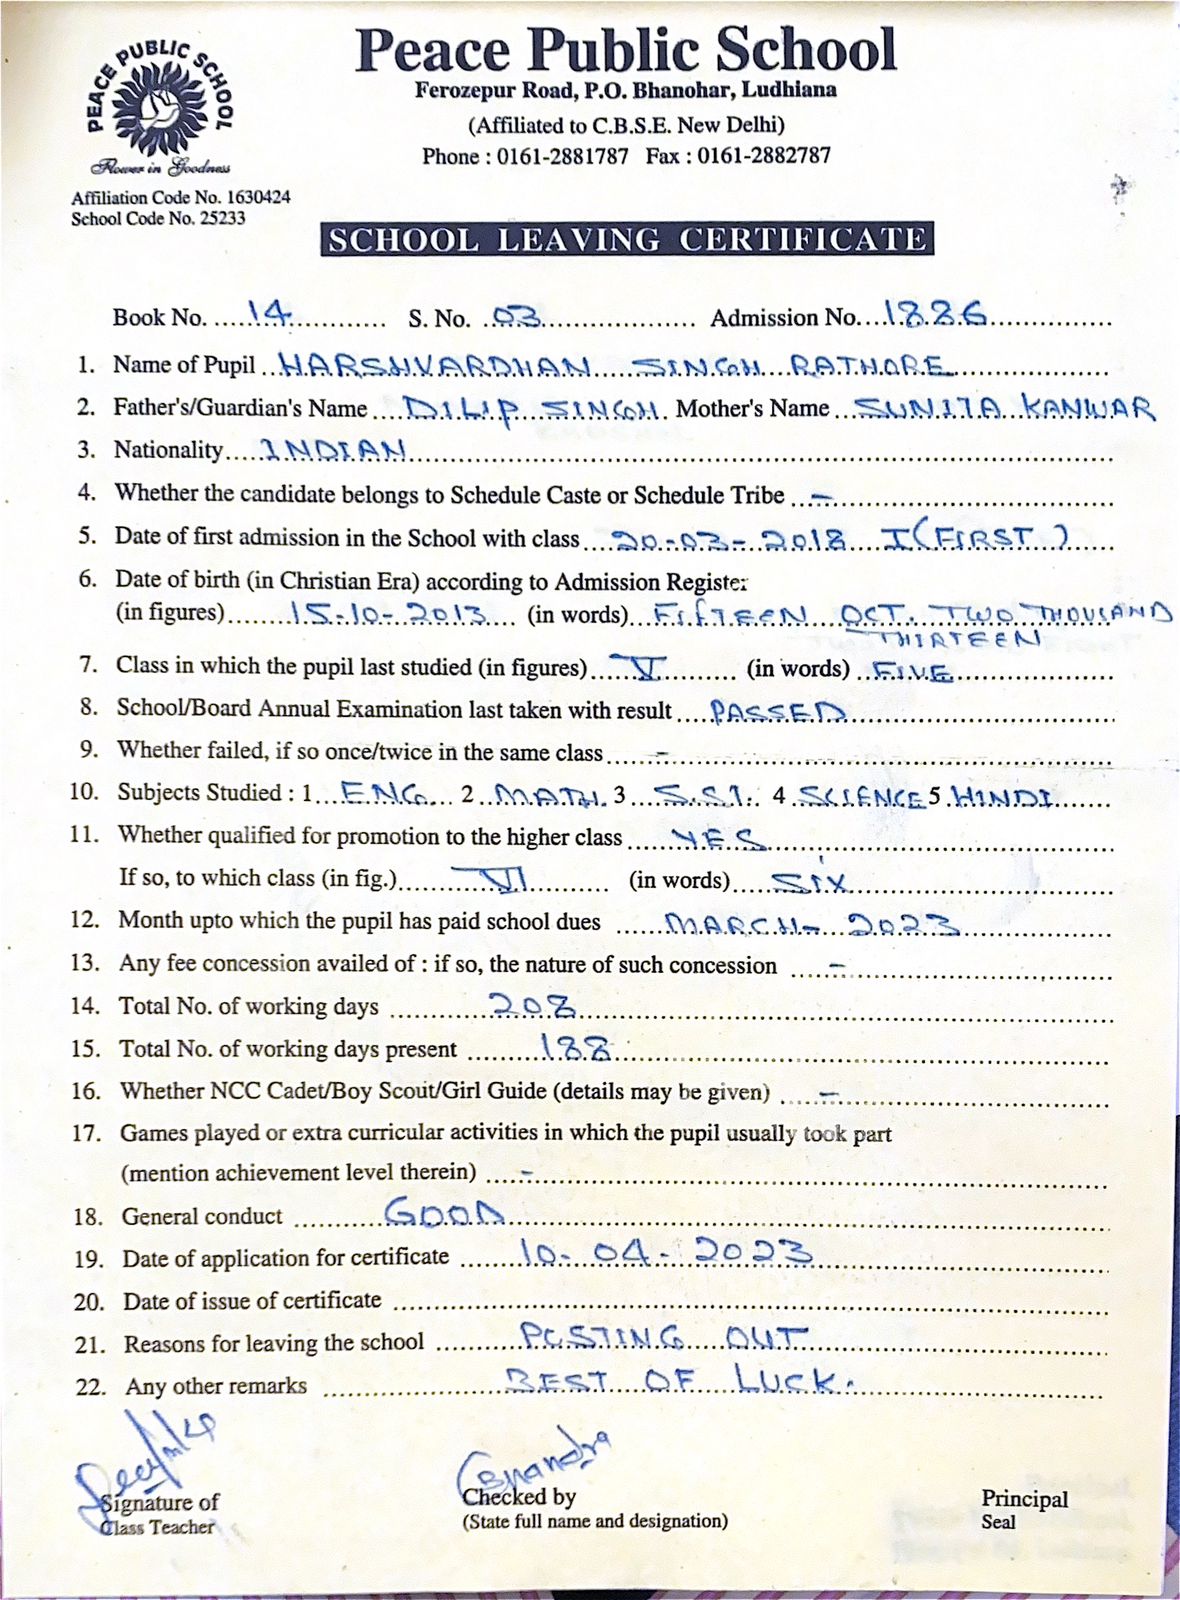 PEACE PUBLIC SCHOOL
Flower in Goodness
Affiliation Code No. 1630424
School Code No. 25233
Peace Public School
Ferozepur Road, P.O. Bhanohar, Ludhiana
(Affiliated to C.B.S.E. New Delhi)
Phone : 0161-2881787 Fax : 0161-2882787
SCHOOL LEAVING CERTIFICATE
Book No. 14 S. No. 03 Admission No. 1886
1. Name of Pupil HARSHVARDHAN SINGH RATHORE
2. Father's/Guardian's Name DILIP SINGH Mother's Name SUNITA KANWAR
3. Nationality INDIAN
4. Whether the candidate belongs to Schedule Caste or Schedule Tribe -
5. Date of first admission in the School with class 20-03-2018 I (FIRST)
6. Date of birth (in Christian Era) according to Admission Register
(in figures) 15-10-2013 (in words) FIFTEEN OCT. TWO THOUSAND
THIRTEEN
7. Class in which the pupil last studied (in figures) V (in words) FIVE
8. School/Board Annual Examination last taken with result PASSED
9. Whether failed, if so once/twice in the same class -
10. Subjects Studied : 1 ENG 2 MATH. 3 S.ST. 4 SCIENCE 5 HINDI
11. Whether qualified for promotion to the higher class YES
If so, to which class (in fig.) VI (in words) SIX
12. Month upto which the pupil has paid school dues MARCH- 2023
13. Any fee concession availed of : if so, the nature of such concession -
14. Total No. of working days 208
15. Total No. of working days present 188
16. Whether NCC Cadet/Boy Scout/Girl Guide (details may be given) -
17. Games played or extra curricular activities in which the pupil usually took part
(mention achievement level therein) -
18. General conduct GOOD
19. Date of application for certificate 10-04-2023
20. Date of issue of certificate
21. Reasons for leaving the school POSTING OUT
22. Any other remarks BEST OF LUCK.
Signature of
Class Teacher
Checked by
(State full name and designation)
Principal
Seal